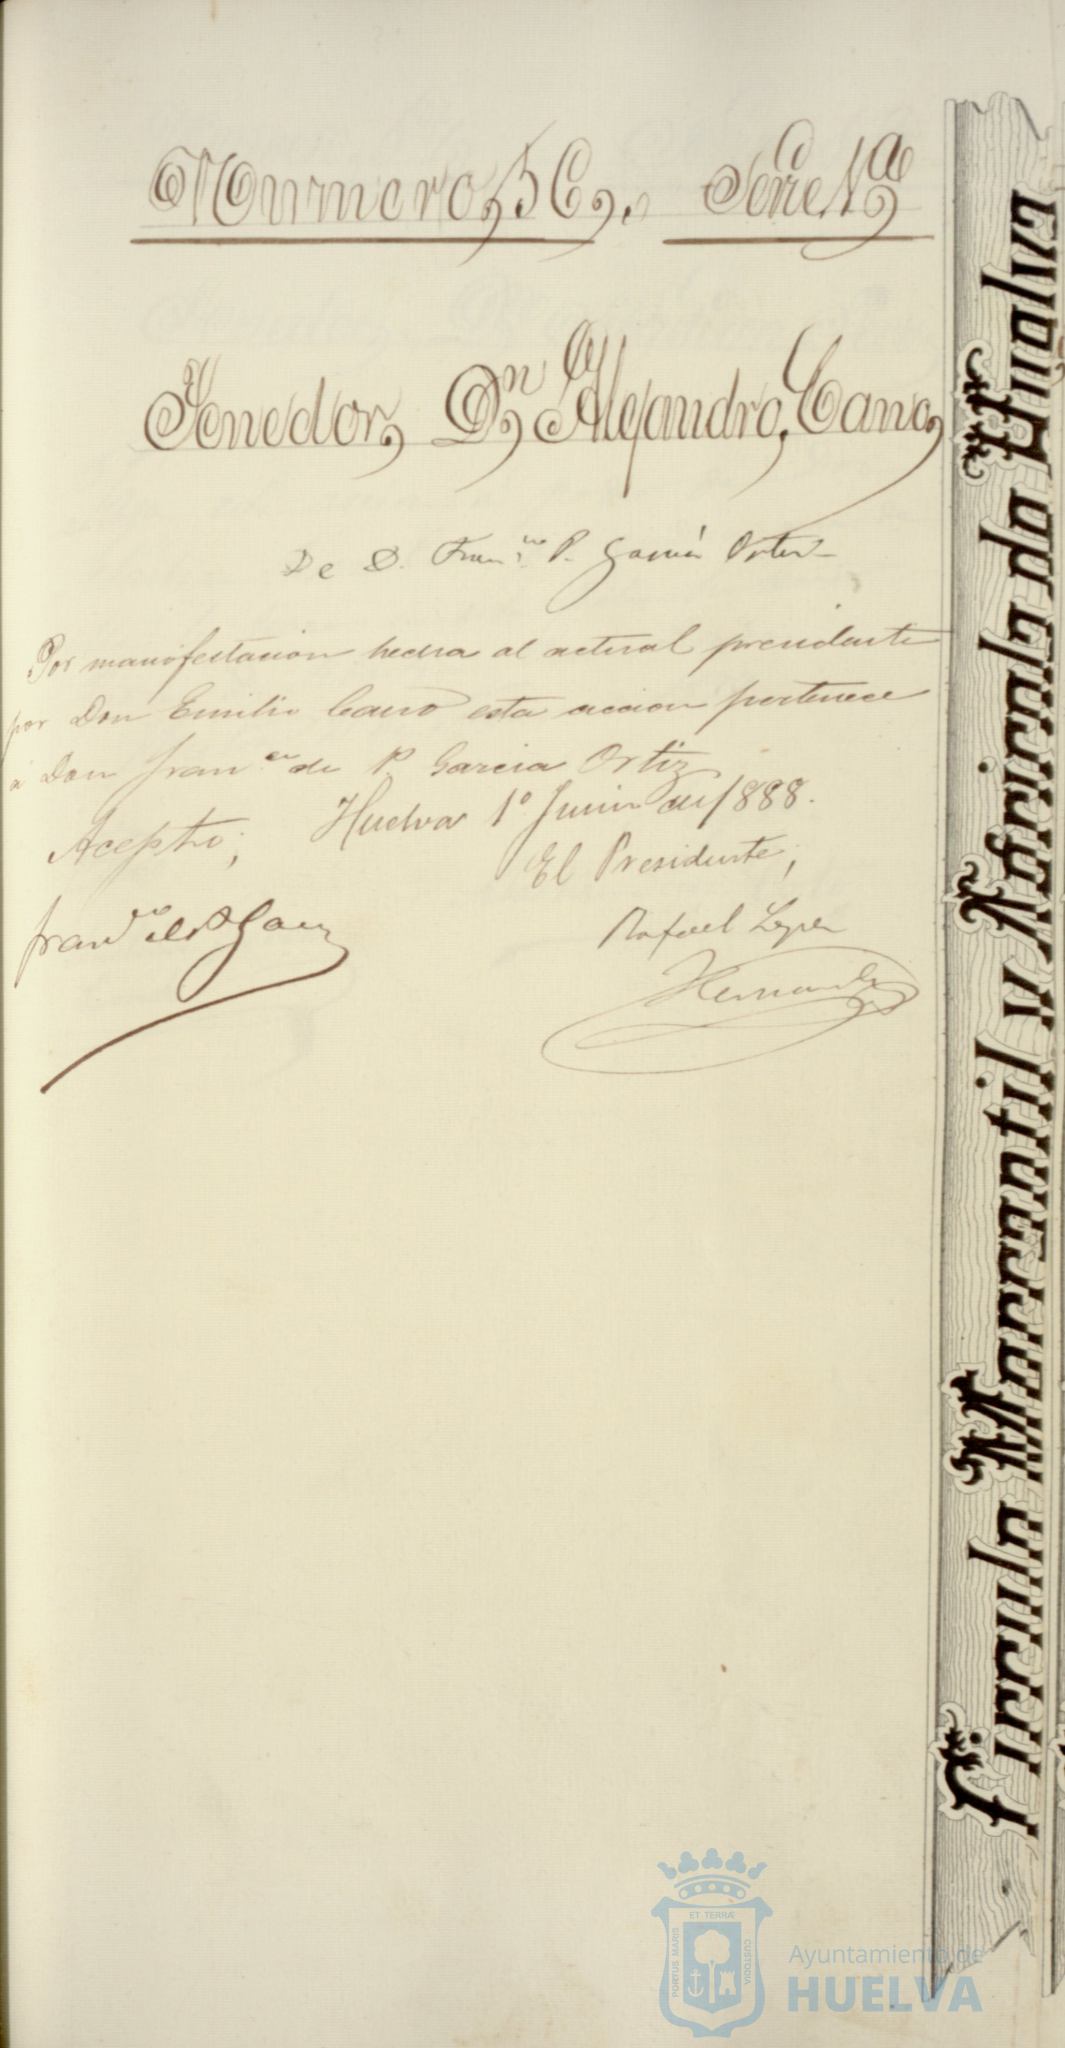 Numero, 56,, Serie A,
Tenedor, Dn Alejandro, Cano,
De D. Franco P. Garcia Ortiz
Por manifestacion hecha al actual presidente
por Don Emilio Cano esta accion pertenece
a Don Franco de P. Garcia Ortiz
Huelva 1º Junio de 1888.
Acepto;
El Presidente;
Franco de P Garcia
Rafael Lopez
Hernandez
Circulo Mercantil y Agricola de Huelva
PORTUS MARIS
ET TERRÆ
CUSTODIA
Ayuntamiento de
HUELVA